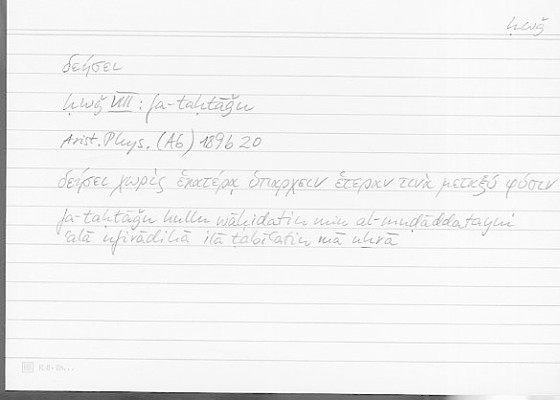 ḥwǧ
δεήσει
ḥwǧ VIII : fa-taḥtāǧu
Arist. Phys. (A6) 189b20
δεήσει χωρὶς ἑκατέρᾳ ὑπάρχειν ἑτέραν τινὰ μεταξὺ φύσιν
fa-taḥtāǧu kullu wāḥidatin min al-muḍāddatayni
ʿalā nfirādihā ilā ṭabīʿatin mā uḫrā